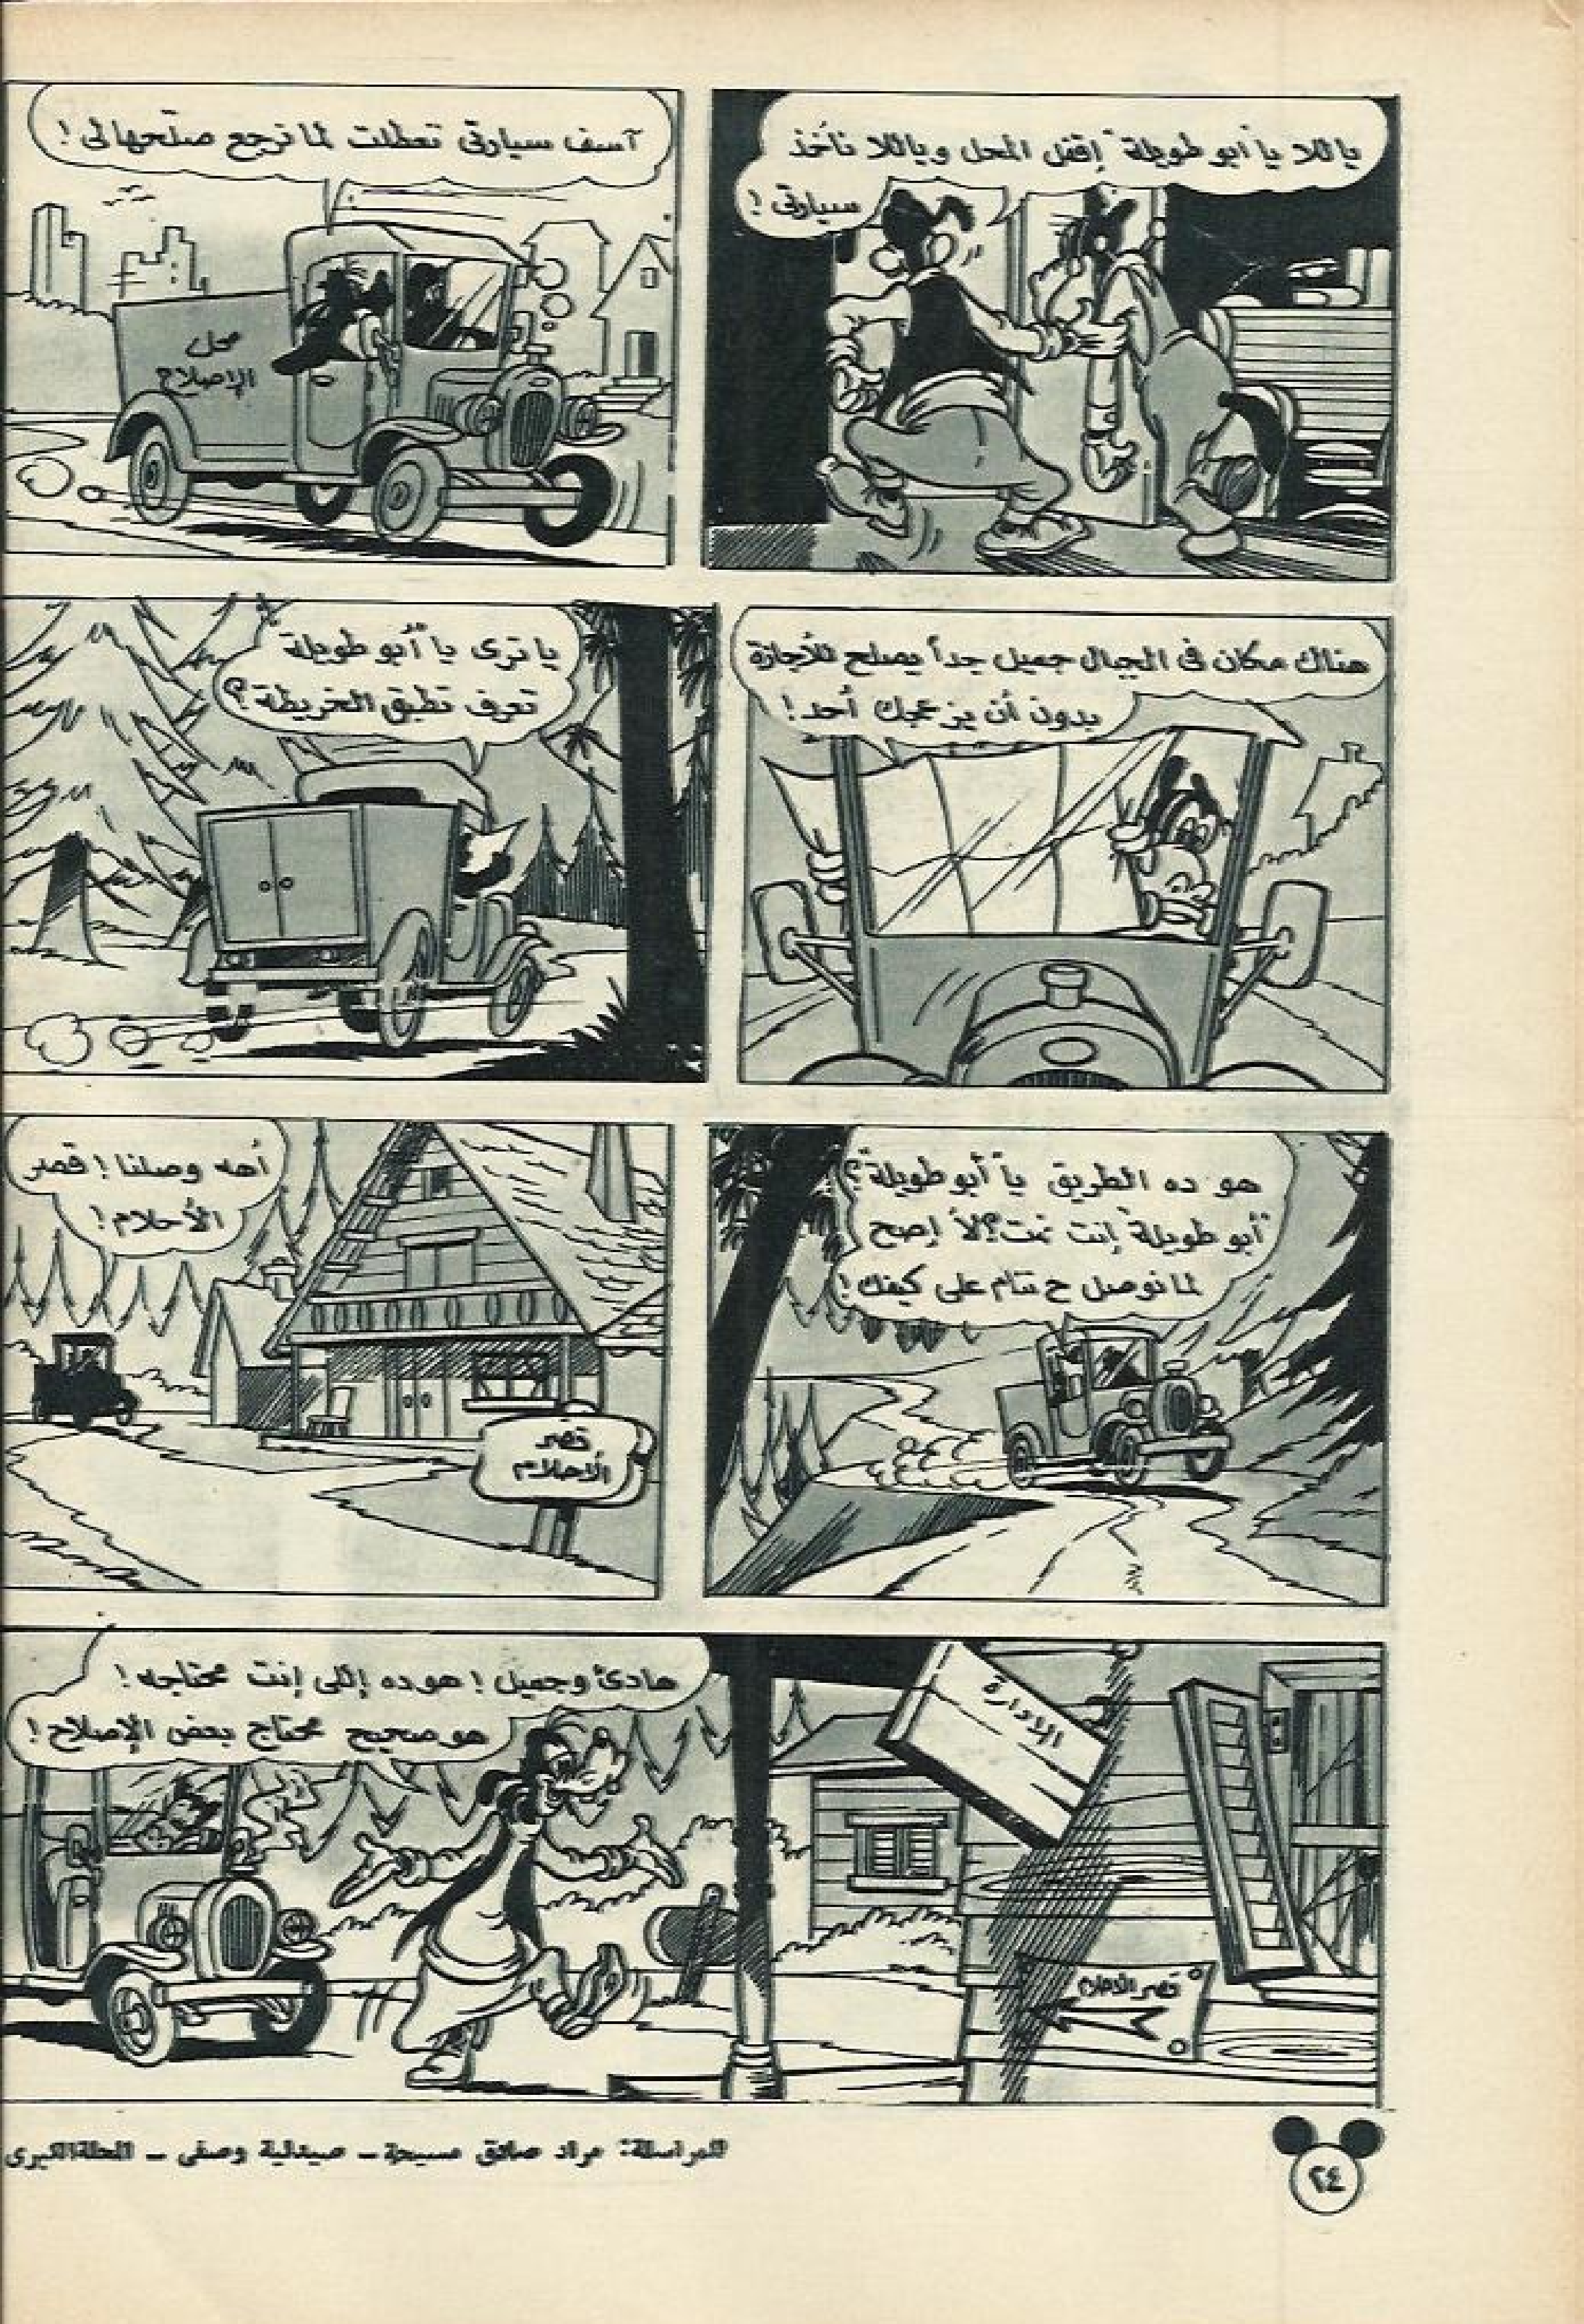 ياللا يا "أبو طويلة" إقفل المحل وياللا نأخذ
سيارتى !
آسف سيارتى تعطلت لما نرجع صلحهالى !
محل
الإصلاح
هناك مكان فى الجبال جميل جداً يصلح للأجازة
بدون أن يزعجك أحد !
يا ترى يا "أبو طويلة
تعرف تطبق الخريطة ؟
هو ده الطريق يا "أبو طويلة" ؟
"أبو طويلة" إنت نمت ؟ لأ إصح
لما نوصل ح تنام على كيفك !
أهه وصلنا ! قصر
الأحلام !
قصر
الأحلام
هادئ وجميل ! هو ده إللى إنت محتاجه !
هو صحيح محتاج بعض الإصلاح !
الإدارة
قصر الأحلام
للمراسلة: مراد صادق مسيحة – صيدلية وصفى – المحلة الكبرى
٢٤